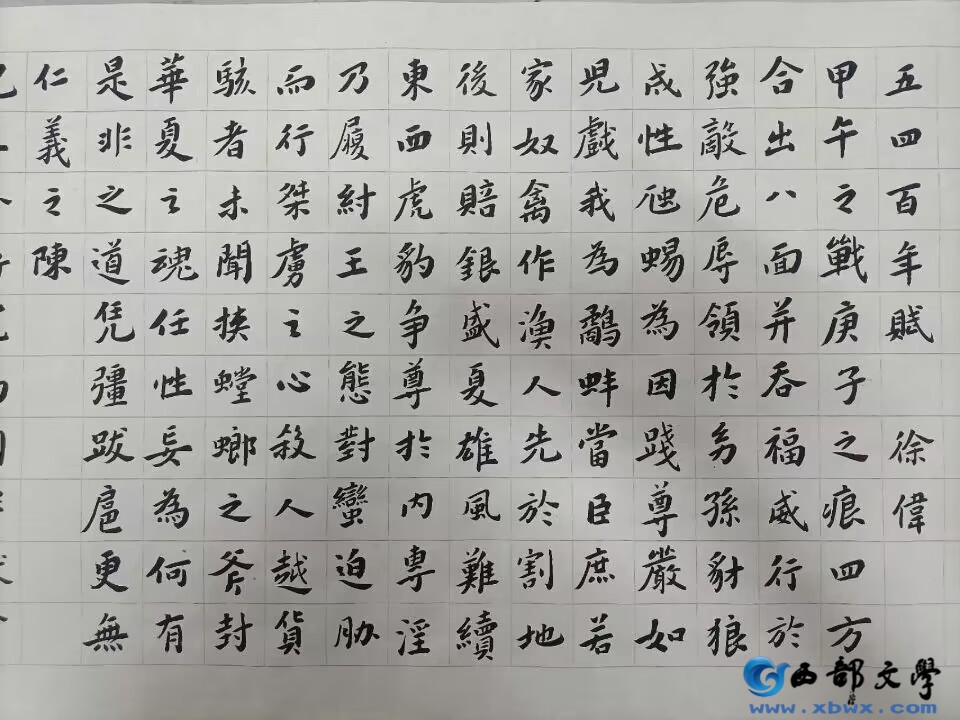 五四百年賦 徐偉
甲午之戰庚子之痕四方
合出八面并吞福威行於
強敵危辱領於幼孫豺狼
成性虺蜴為因踐尊嚴如
兒戲我為鷸蚌當臣庶若
家奴禽作漁人先於割地
後則賠銀盛夏雄風難續
東西虎豹争尊於內專淫
乃履紂王之態對蠻迫胁
而行桀虜之心殺人越貨
駭者未聞挾螳螂之斧封
華夏之魂任性妄為何有
是非之道凭彊跋扈更無
仁義之陳
西部文學
www.xbwx.com